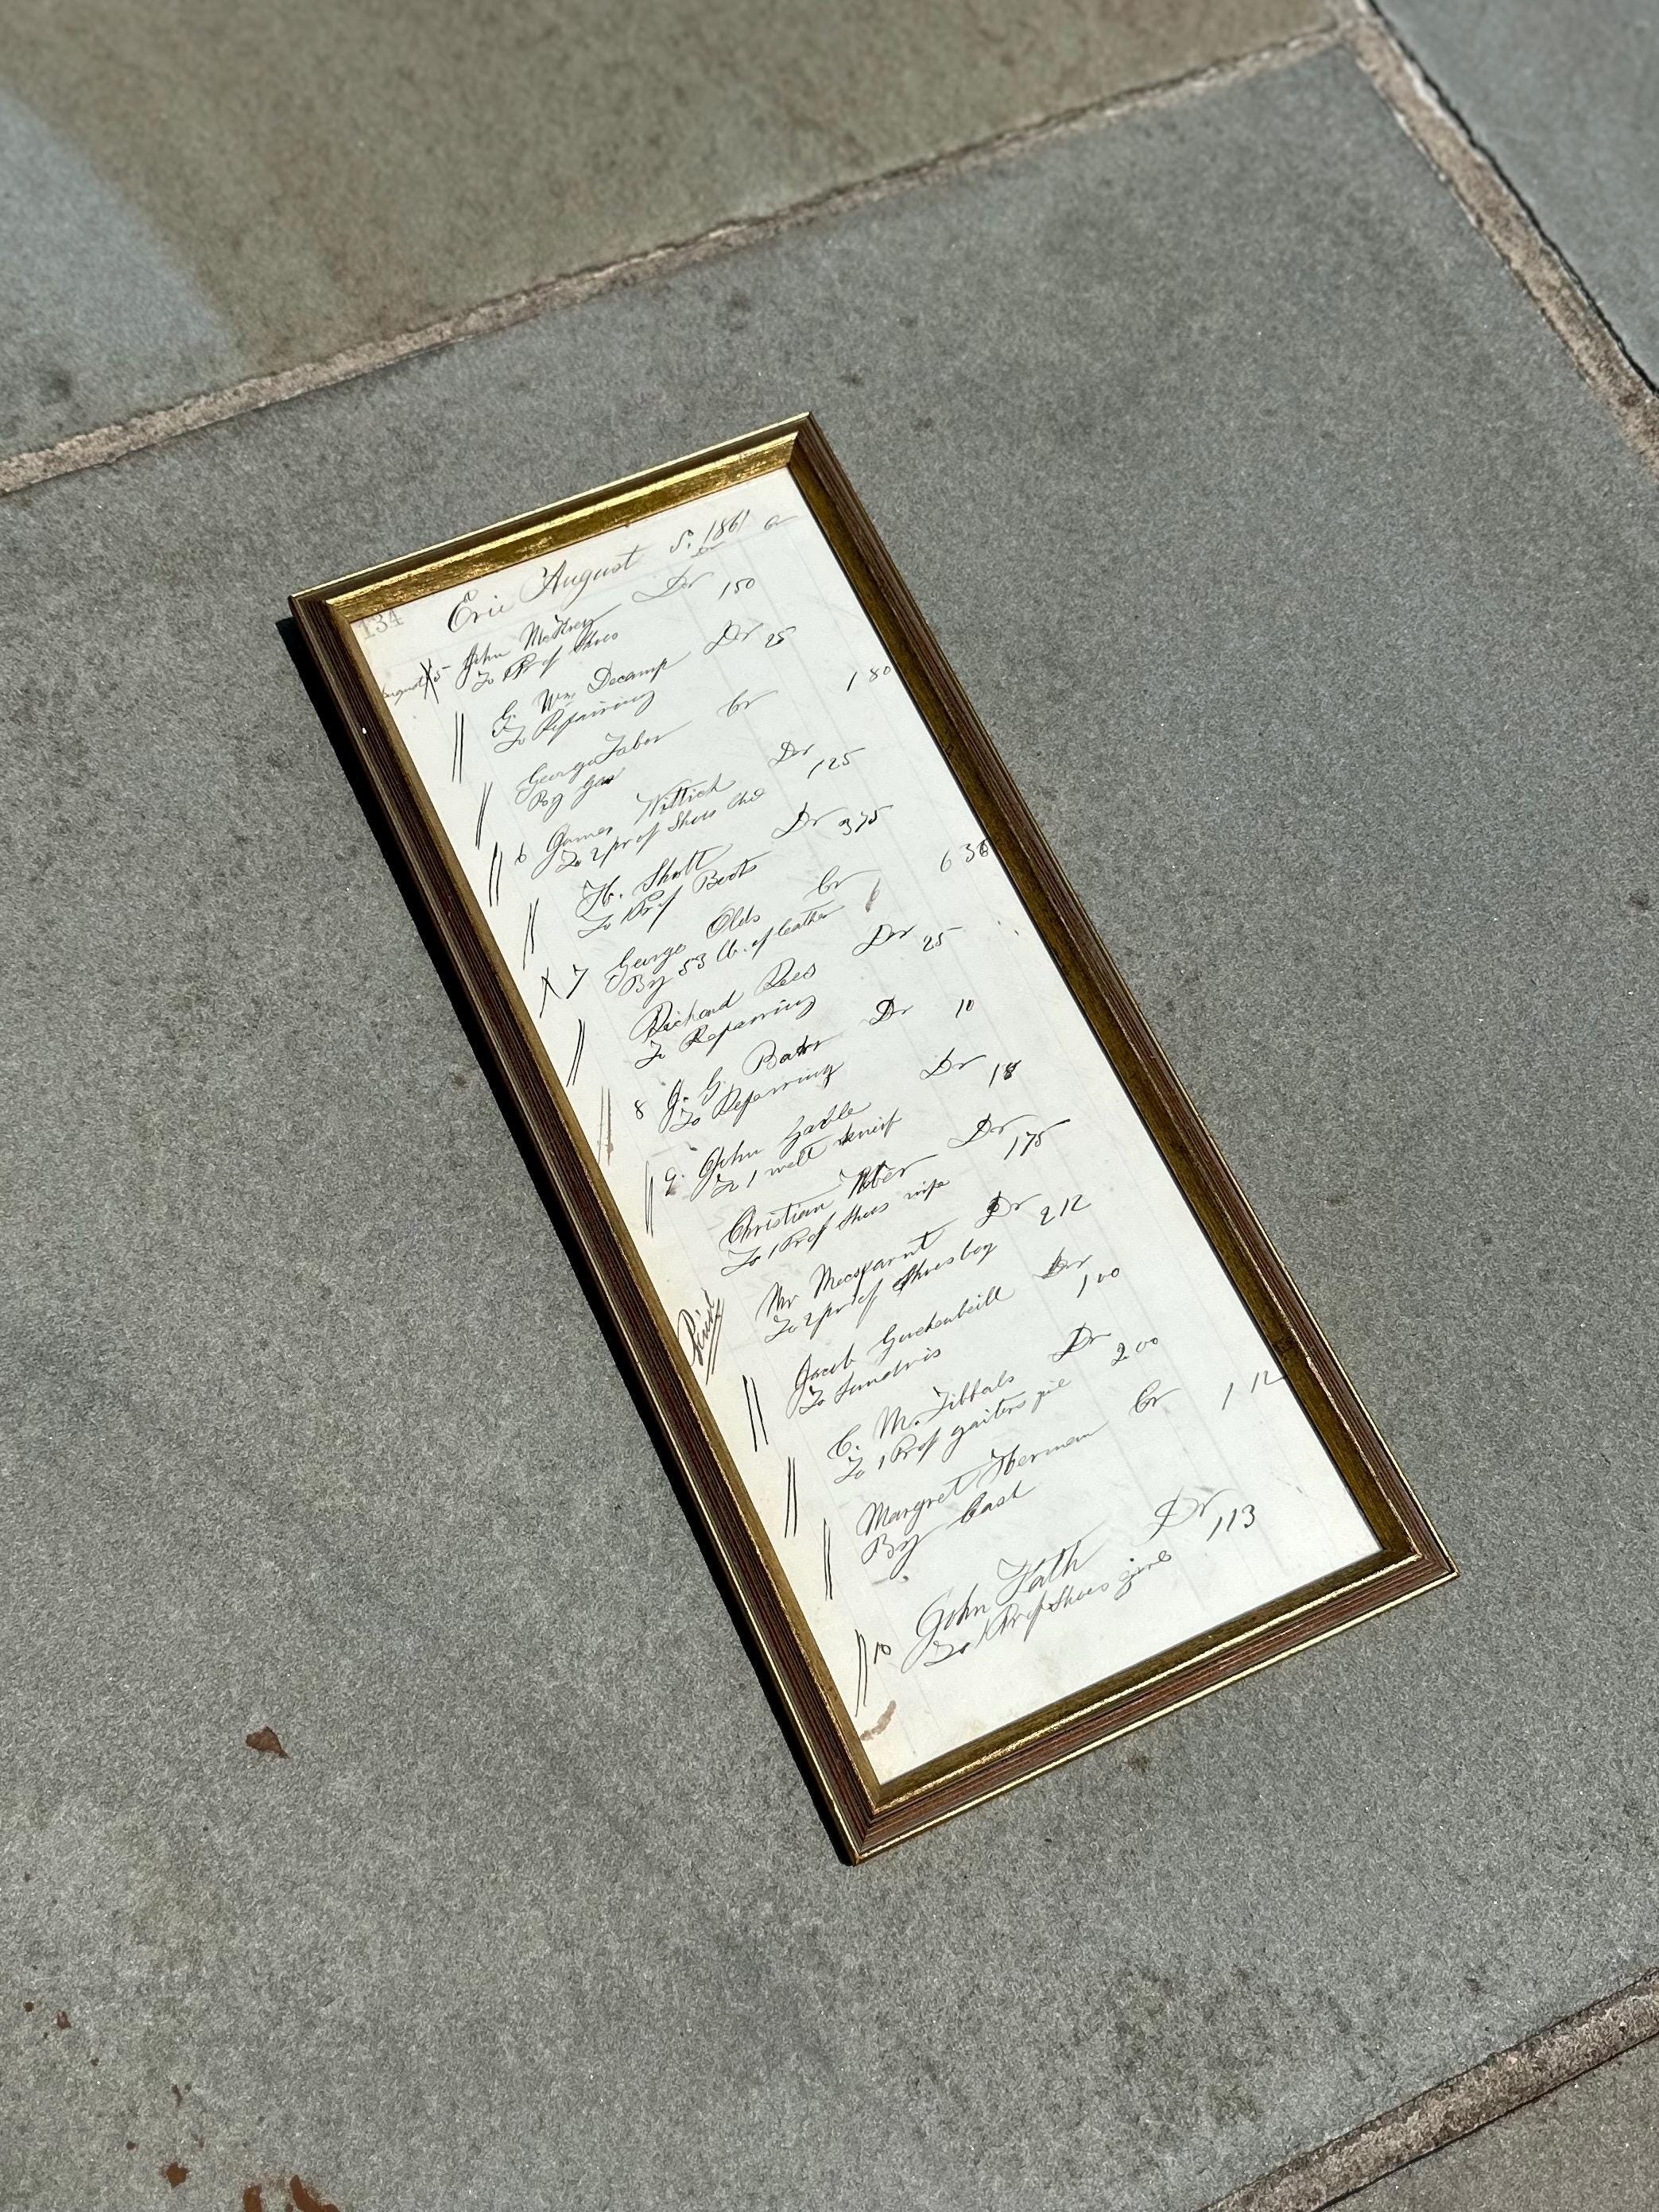 134
Erie August 5. 1861
Dr Cr
August 5 John Dr 150
To 1 Pr of Shoes
G. Wm Decamp Dr 25
To Repairing
George Taber Cr 1 80
By
6 James Wittich Dr
To 2 pr of Shoes Chd 125
H. Shott Dr 375
To 1 Pr of Boots
7 George Olds Cr 6 36
By 53 lb. of leather
Richard Rees Dr 25
To Repairing
8 J. G. Dr 10
To Reparring
9. John Gable Dr 18
To 1 welt kneif
Christian Dr
To 1 Pr of Shoes wife 175
Mr Dr
To 2 pr of Shoes boy 212
Paid
Jacob Dr
To Sundris 1 00
C. M. Tibbals Dr
To 1 Pr of gaiters 2 00
Margret Herman Cr 1 12
By Cash
10 John Fath Dr
To 1 Pr of Shoes girls 113